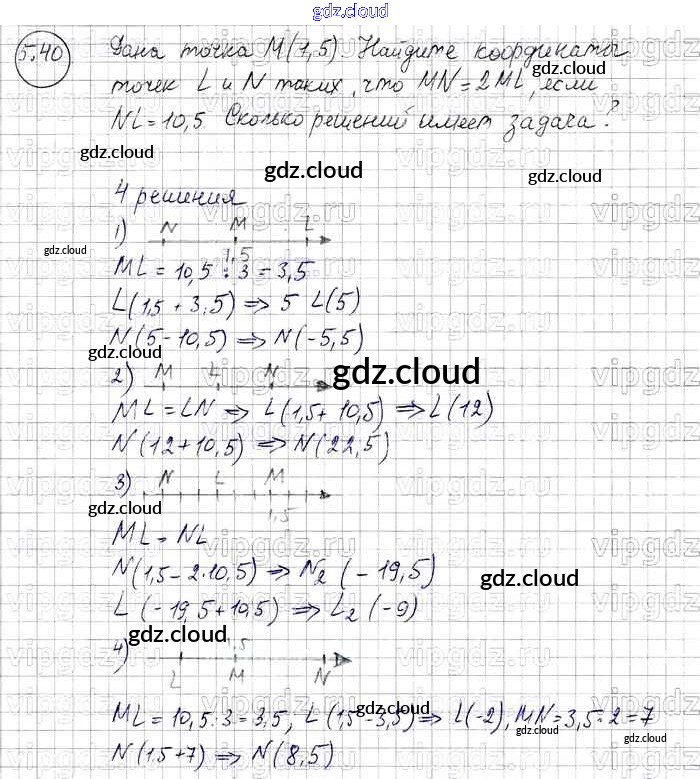 gdz.cloud
5.40 Дана точка M(1,5). Найдите координаты
точек L и N таких, что MN=2ML, если
NL=10,5. Сколько решений имеет задача?
gdz.cloud gdz.cloud gdz.cloud
4 решения
1) N M L
1,5
gdz.cloud
ML = 10,5 : 3 = 3,5
L(1,5 + 3,5) => 5 L(5)
N(5-10,5) => N(-5,5)
gdz.cloud
2) M L N
gdz.cloud
ML = LN => L(1,5+ 10,5) => L(12)
N(12+10,5) => N(22,5)
3) N L M
1,5
gdz.cloud
ML = NL
N(1,5-2·10,5) => N₂ (-19,5)
gdz.cloud
L (-19,5+10,5) => L₂(-9)
gdz.cloud
4) 1,5
L M N
gdz.cloud
ML = 10,5:3=3,5, L(1,5-3,5) => L(-2), MN=3,5·2=7
N(1,5+7) => N(8,5)
gdz.cloud
gdz.cloud
vipgdz.ru